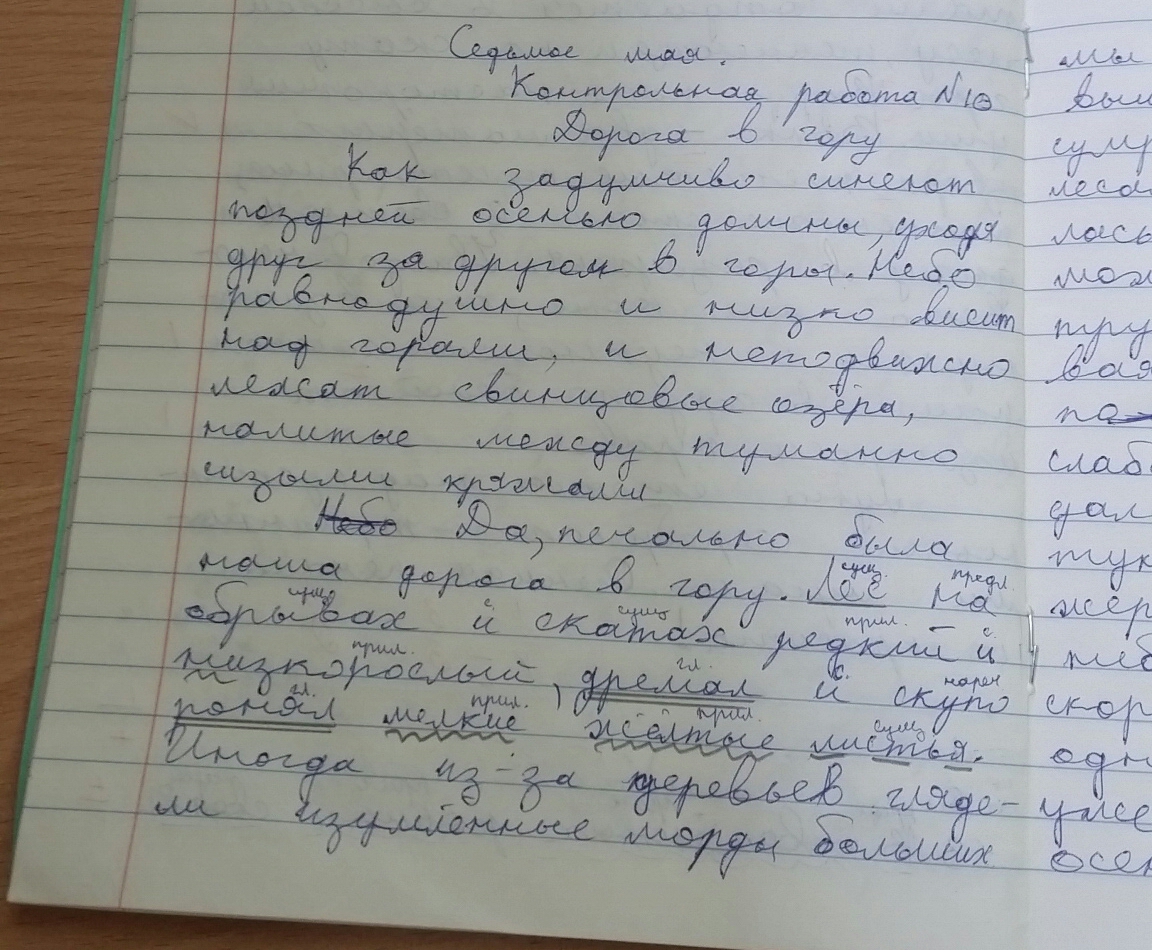 Седьмое мая.
Контрольная работа №10
Дорога в гору
Как задумчиво синеют
поздней осенью долины, уходя
друг за другом в горы. Небо
равнодушно и низко висит
над горами, и неподвижно
лежат свинцовые озёра,
налитые между туманно
сизыми кряжами
Небо Да, печально была
наша дорога в гору. Лес на
сущ. предл.
обрывах и скатах редкий и
сущ сущ прил. с.
низкорослый, дремал и скупо
прил. гл. с. нареч
ронял мелкие жёлтые листья.
гл. прил. прил. сущ
Иногда из-за деревьев гляде-
ли изумлённые морды больших
мы
сумр
леса
лась
мож
тру
вая
па
слаб
дал
тук
жер
неб
скор
одн
уже
осен